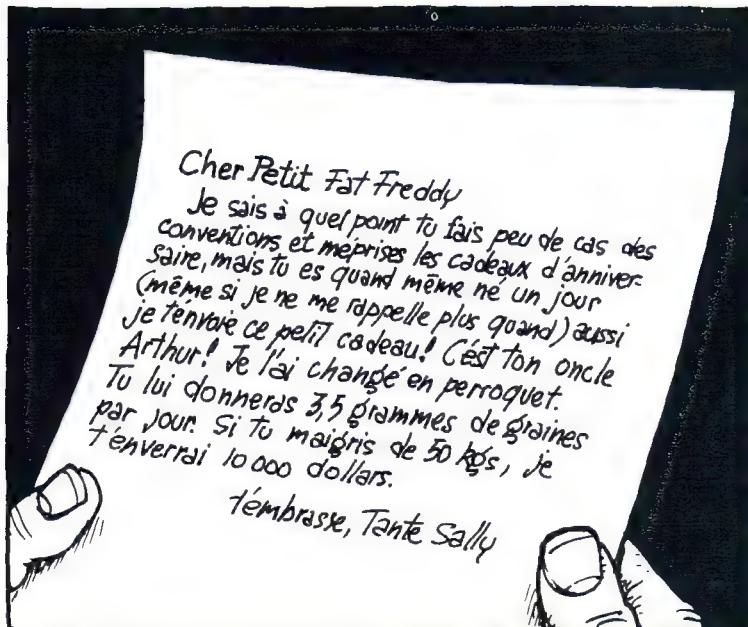 Cher Petit Fat Freddy
Je sais à quel point tu fais peu de cas des
conventions et méprises les cadeaux d'anniver-
saire, mais tu es quand même né un jour
(même si je ne me rappelle plus quand) aussi
je t'envoie ce petit cadeau! C'est ton oncle
Arthur! Je l'ai changé en perroquet.
Tu lui donneras 3,5 grammes de graines
par jour. Si tu maigris de 50 kgs, je
t'enverrai 10 000 dollars.
t'embrasse, Tante Sally